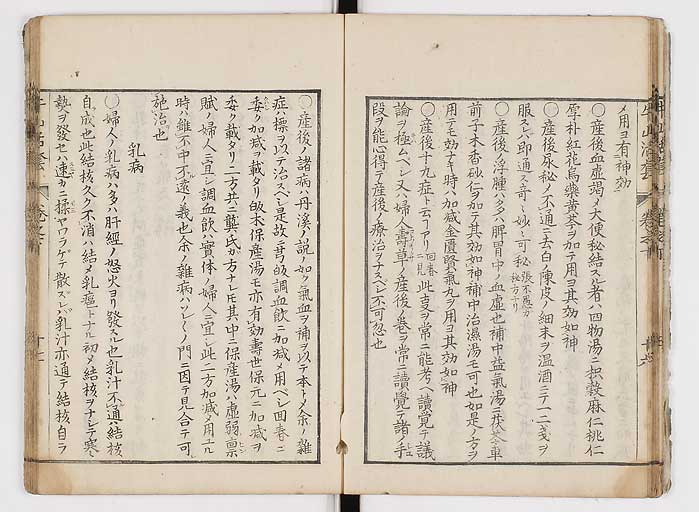 メ用ヨ有神効
〇産後血虚竭メ大便秘結スル者ハ四物湯ニ枳殻麻仁桃仁
厚朴紅花烏薬黄芩ヲ加テ用ヨ其効如神
〇産後尿秘ノ不通ニ去白ノ陳皮ノ細末ヲ温酒ニテ一二戔ヲ
服スレハ即通ス奇ニ妙ニ可秘
〇産後ノ浮腫ハ多ハ脾胃中ノ血虚也補中益気湯ニ茯苓車
前子木香砂仁ヲ加テ其効如神補中治湿湯モ可也如是ノ方ヲ
用テモ効ナキ時ハ加減金匱腎気丸ヲ用ヨ其効如神
〇産後十九症ト云アリ 回春ニ見 此文ヲ常ニ能考ヘ讀覚テ議
論ヲ極ムヘシ又ハ婦人壽草ノ産後ノ巻ヲ常ニ讀覚テ諸ノ手
段ヲ能心得テ産後ノ療治ヲナスヘシ不可忽也
〇産後ノ諸病ハ丹溪ノ説ノ如ク氣血ヲ補ヲ以テ本トメ余ノ雜
症ハ標ヲ以テ治スヘシ是故ニ芎皈調血飲ニ加減メ用ヘシ回春ニ
委ク加減ヲ載タリ皈末保産湯モ亦有効壽世保元ニ加減ヲ
委ク載タリ二方共ニ龔氏カ方ナレ𪜈其中ニ保産湯ハ虚弱禀
賦ノ婦人ニ宜シ調血飲ハ實体ノ婦人ニ宜シ此二方加減用ユル
時ハ雖不中不遠ノ義也余ノ雜病ハソレ〱ノ門ニ因テ見合テ可
施治也
乳病
〇婦人ノ乳病ハ多ハ肝經ノ怒火ヨリ發スル也乳汁不通ハ結核
自成也此結核久ク不消ハ結メ乳癰トナル初メ結核ヲナレテ寒
熱ヲ發セハ速カニ揉ヤワラケテ散スレハ乳汁亦通テ結核自ラ